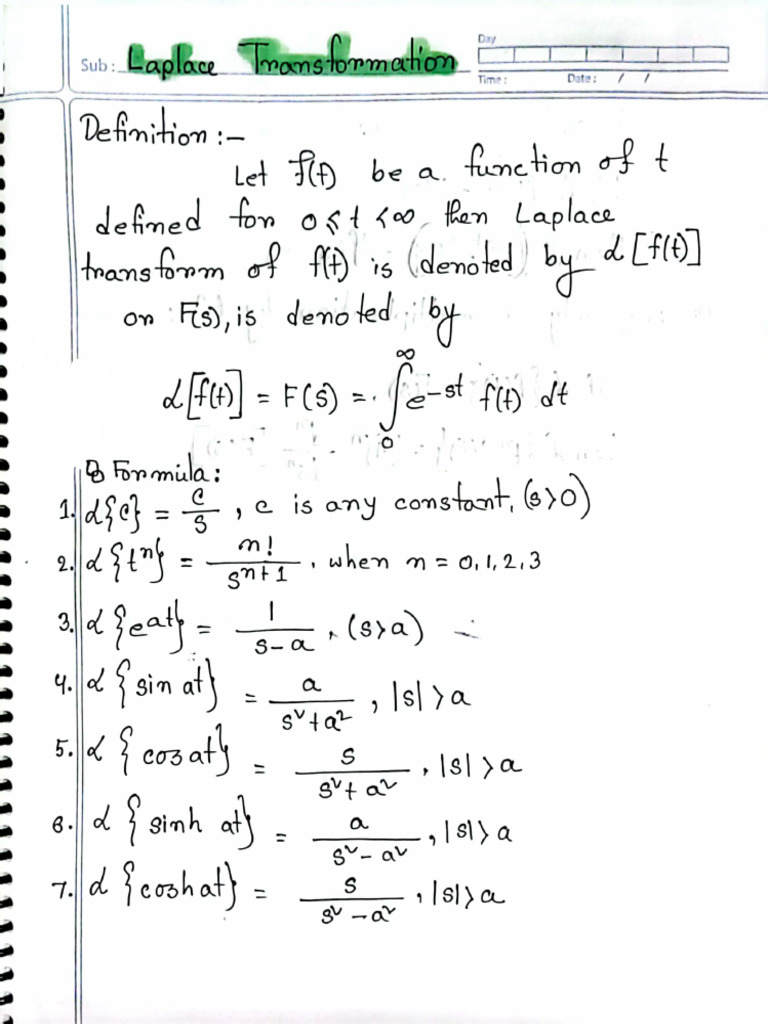 Sub: Laplace Transformation
Day
Time: Date: / /
Definition :-
Let f(t) be a function of t
defined for 0 ≤ t < ∞ then Laplace
transform of f(t) is (denoted) by ℒ[f(t)]
or F(s), is denoted by
ℒ[f(t)] = F(s) = ∫₀^∞ e^{-st} f(t) dt
Formula:
1. ℒ{c} = c/s , c is any constant, (s>0)
2. ℒ{tⁿ} = n!/s^{n+1} , when n = 0,1,2,3
3. ℒ{e^{at}} = 1/(s-a) , (s>a)
4. ℒ{sin at} = a/(s²+a²) , |s|>a
5. ℒ{cos at} = s/(s²+a²) , |s|>a
6. ℒ{sinh at} = a/(s²-a²) , |s|>a
7. ℒ{cosh at} = s/(s²-a²) , |s|>a